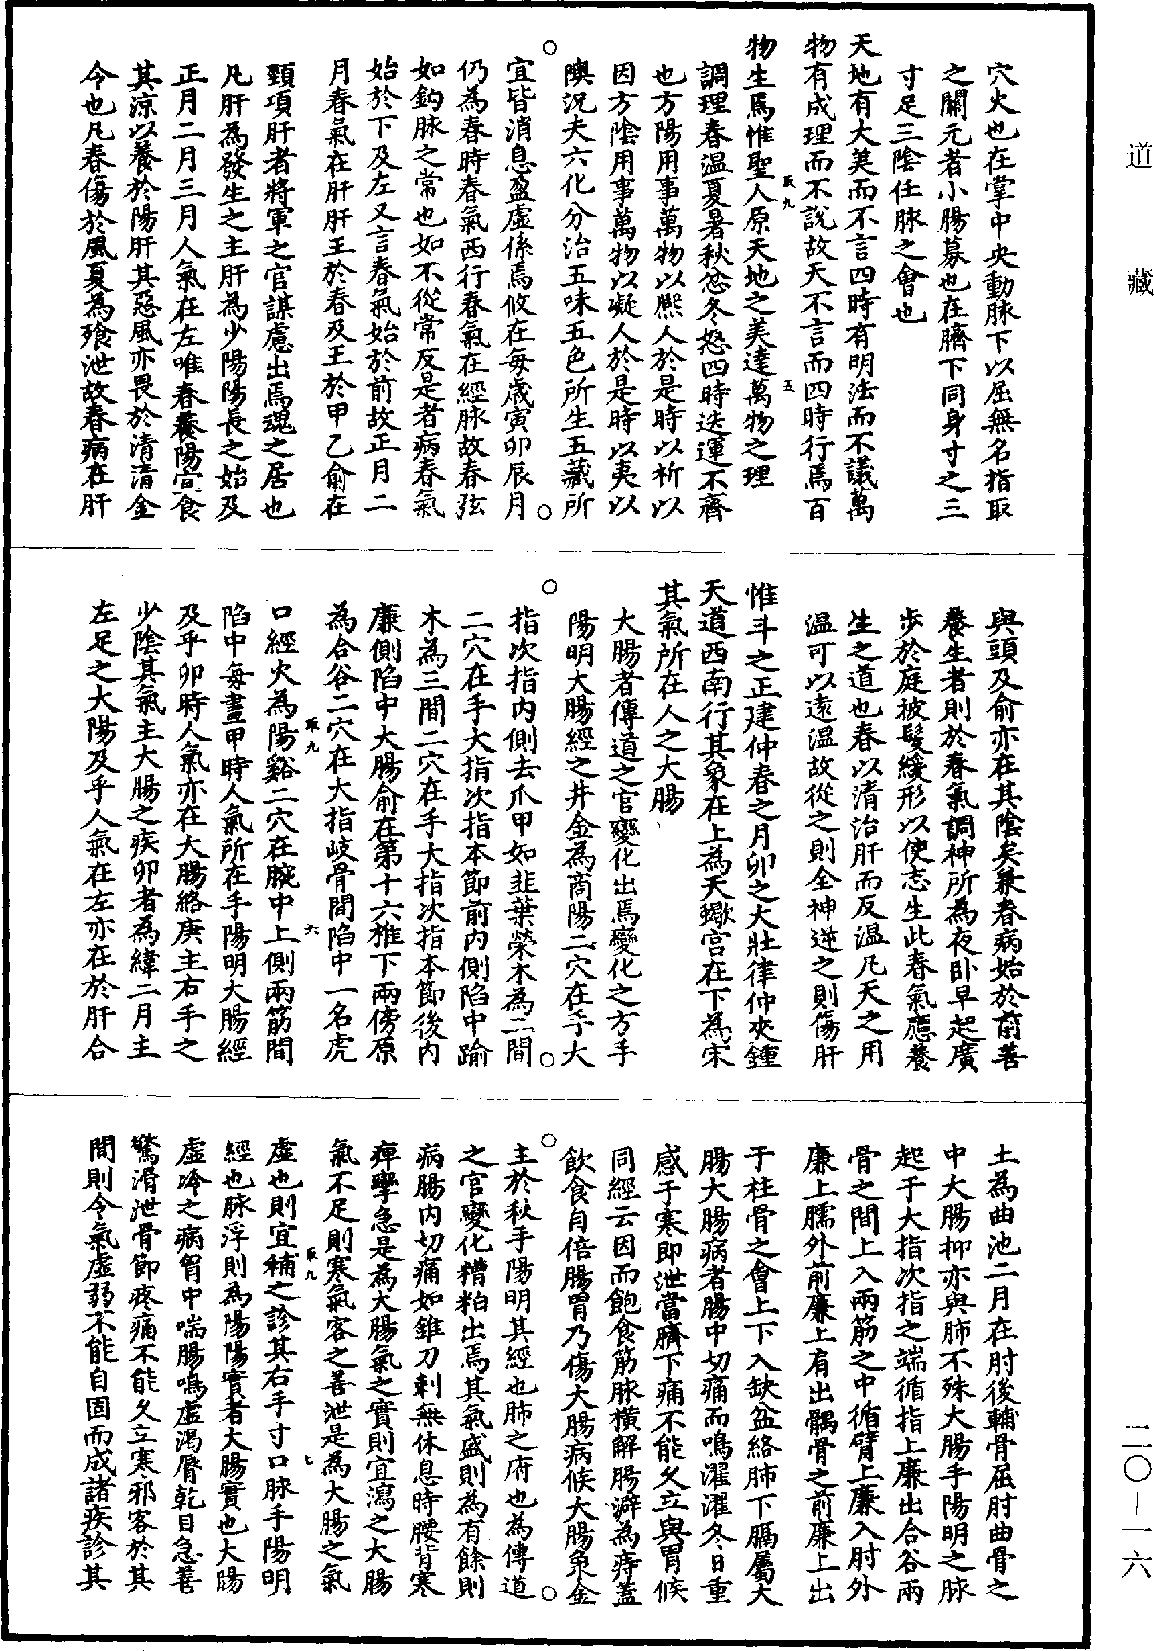 道藏
二〇－一六
穴火也在掌中央動脉下以屈無名指取
之關元者小腸募也在臍下同身寸之三
寸足三陰任脉之會也
天地有大美而不言四時有明法而不議萬
物有成理而不說故天不言而四時行焉百
取九
五
物生焉惟聖人原天地之美達萬物之理
調理春温夏暑秋忿冬怒四時迭運不齊
也方陽用事萬物以熙人於是時以祈以
因方陰用事萬物以凝人於是時以夷以
隩況夫六化分治五味五色所生五藏所
宜皆消息盈虛係焉攸在每歲寅卯辰月
仍為春時春氣西行春氣在經脉故春弦
如鈎脉之常也如不從常反是者病春氣
始於下及左又言春氣始於前故正月二
月春氣在肝肝王於春及王於甲乙俞在
頸項肝者將軍之官謀慮出焉魂之居也
凡肝為發生之主肝為少陽陽長之始及
正月二月三月人氣在左唯春養陽宜食
其涼以養於陽肝其惡風亦畏於清清金
令也凡春傷於風夏為飱泄故春病在肝
與頭及俞亦在其陰矣兼春病始於前善
養生者則於春氣調神所為夜卧早起廣
步於庭被髮緩形以使志生此春氣應養
生之道也春以清治肝而反温凡天之用
温可以遠温故從之則全神逆之則傷肝
惟斗之正建仲春之月卯之大壯律仲夾鍾
天道西南行其象在上為天蠍宫在下為宋
其氣所在人之大腸
大腸者傳道之官變化出焉變化之方手
陽明大腸經之井金為商陽二穴在手大
指次指内側去爪甲如韭葉榮木為二間
二穴在手大指次指本節前内側陷中踰
木為三間二穴在手大指次指本節後内
廉側陷中大腸俞在第十六椎下兩傍原
為合谷二穴在大指歧骨間陷中一名虎
取九
六
口經火為陽谿二穴在腕中上側兩筋間
陷中每晝甲時人氣所在手陽明大腸經
及乎卯時人氣亦在大腸絡庚主右手之
少陰其氣主大腸之疾卯者為緯二月主
左足之大陽及乎人氣在左亦在於肝合
土為曲池二月在肘後輔骨屈肘曲骨之
中大腸抑亦與肺不殊大腸手陽明之脉
起于大指次指之端循指上廉出合谷兩
骨之間上入兩筋之中循臂上廉入肘外
廉上臑外前廉上有出髃骨之前廉上出
于柱骨之會上下入缺盆絡肺下膈屬大
腸大腸病者腸中切痛而鳴濯濯冬日重
感于寒即泄當臍下痛不能久立與胃候
同經云因而飽食筋脉横解腸澼為痔蓋
飲食自倍腸胃乃傷大腸病候大腸象金
主於秋手陽明其經也肺之府也為傳道
之官變化糟粕出焉其氣盛則為有餘則
病腸内切痛如錐刀刺無休息時腰背寒
痺攣急是為大腸氣之實則宜瀉之大腸
氣不足則寒氣客之善泄是為大腸之氣
取九
七
虛也則宜補之診其右手寸口脉手陽明
經也脉浮則為陽陽實者大腸實也大腸
虛冷之病胷中喘腸鳴虛渴脣乾目急善
驚滑泄骨節疼痛不能久立寒邪客於其
間則令氣虛弱不能自固而成諸疾診其